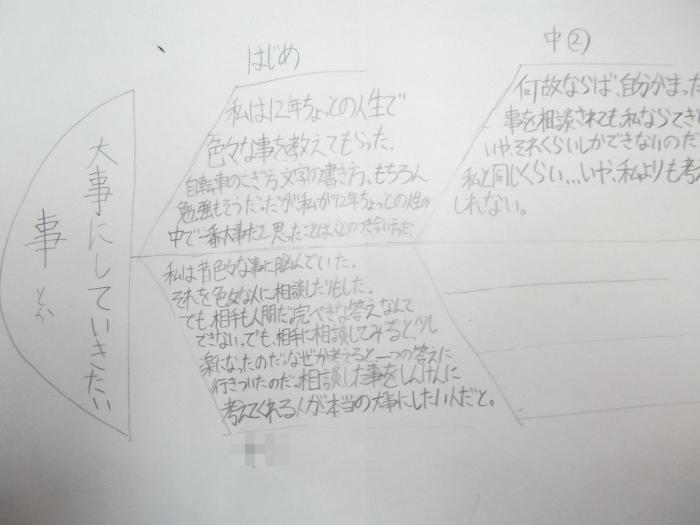 大事にしていきたい
事とか
はじめ
私は12年ちょっとの人生で
色々な事を教えてもらった。
自転車のこぎ方、文字の書き方、もちろん
勉強もそうだ。だが私が12年ちょっとの人生の
中で一番大事だと思ったことは人とのつき合い方だ。
私は昔色々な事に悩んでいた。
それを色々な人に相談したりもした。
でも、相手も人間だ。完ぺきな答えなんて
できない。でも、相手に相談してみると、少し
楽になったのだ。なぜか考えると一つの答えに
行きついたのだ。相談した事をしんけんに
考えてくれる人が本当の大事にしたい人だと。
中②
何故ならば、自分がまった
事を相談されても私ならてき
いや、それくらいしかできないのだ
私と同じくらい...いや、私よりも考
しれない。